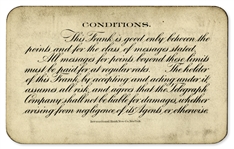 CONDITIONS.
This Frank is good only between the
points and for the class of messages stated.
All messages for points beyond those limits
must be paid for at regular rates. The holder
of this Frank, by accepting and acting under it,
assumes all risk, and agrees that the Telegraph
Company shall not be liable for damages, whether
arising from negligence of its Agents, or otherwise.